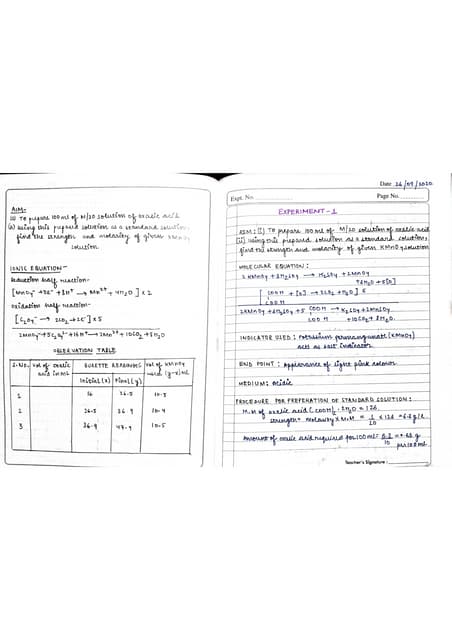 AIM-
(i) To prepare 100 ml of M/20 solution of oxalic acid
(ii) Using this prepared solution as a standard solution,
find the strength and molarity of given KMnO4
solution
IONIC EQUATION-
Reduction half reaction-
[MnO4⁻ + 5e⁻ + 8H⁺ → Mn²⁺ + 4H2O] × 2
Oxidation half reaction-
[C2O4²⁻ → 2CO2 + 2e⁻] × 5
2MnO4⁻ + 5C2O4²⁻ + 16H⁺ → 2Mn²⁺ + 10CO2 + 8H2O
OBSERVATION TABLE
S.No. Vol of oxalic acid in mL BURETTE READINGS Vol of KMnO4 used (y-x) mL
Initial (x) Final (y)
1 16 26.5
2 26.5 36.9 10.4
3 36.9 47.4 10.5
Date 26/09/2020
Expt. No. Page No.
EXPERIMENT-1
AIM: (i) To prepare 100 mL of M/20 solution of oxalic acid
(ii) Using this prepared solution as a standard solution,
find the strength and molarity of given KMnO4 solution
MOLECULAR EQUATION:
2KMnO4 + 3H2SO4 → K2SO4 + 2MnSO4
+ 3H2O + 5[O]
[COOH + [O] → 2CO2 + H2O] 5
COOH
2KMnO4 + 3H2SO4 + 5 COOH → K2SO4 + 2MnSO4
COOH + 10CO2 + 8H2O
INDICATOR USED: Potassium permanganate (KMnO4)
acts as self indicator
END POINT: Appearance of light pink colour
MEDIUM: Acidic
PROCEDURE FOR PREPERATION OF STANDARD SOLUTION:
M.M of oxalic acid (COOH)2 . 2H2O = 126
Strength = molarity × M.M = 1/20 × 126 = 6.3 g/L
Amount of oxalic acid required for 100 mL = 6.3/10 = 0.63 g
per 100 mL
Teacher's Signature :